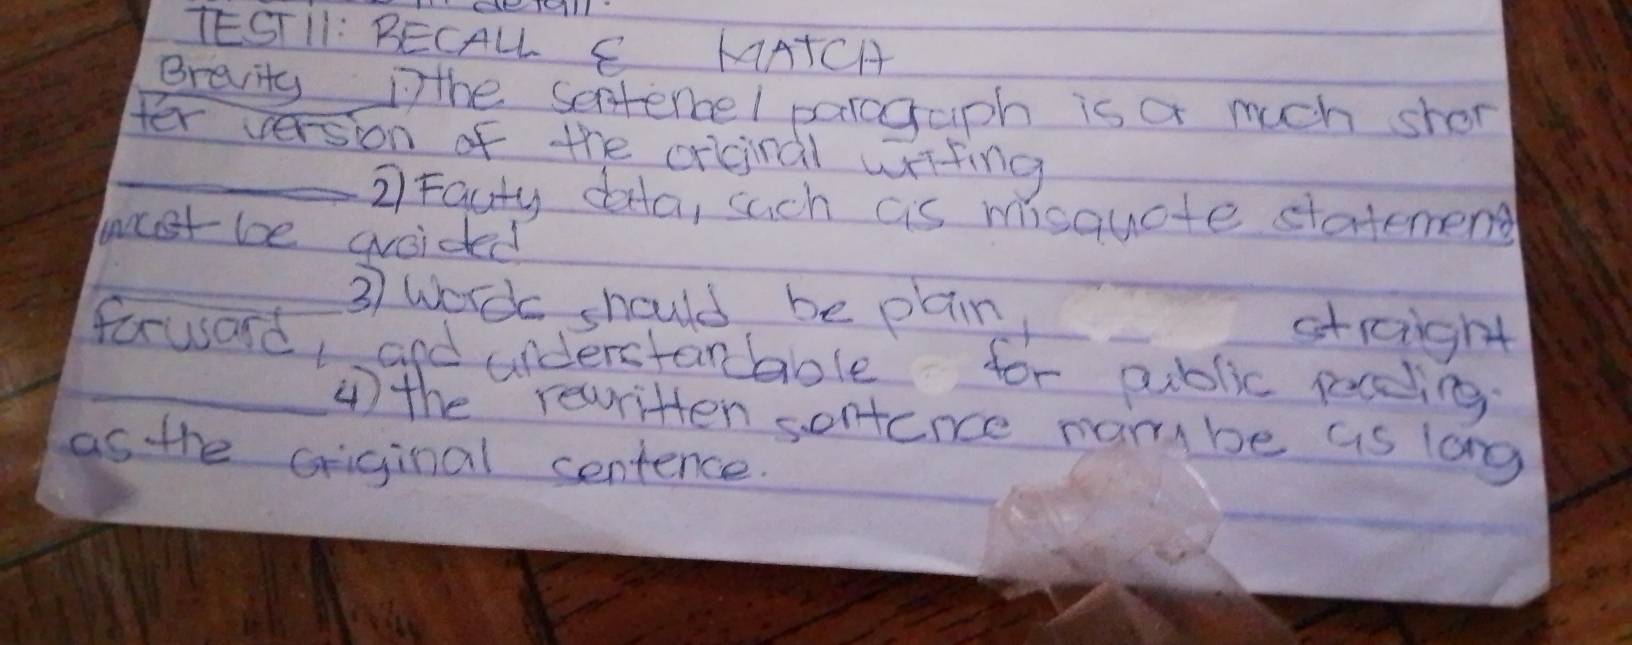 detail.
TEST II: RECALL & MATCH
Brevity 1) the sentence / paragraph is a much shor
ter version of the original writing
2) Fauty data, such as misquote statement
must be avoided
3) Words should be plain, straight
forward, and understandable for public reading.
4) the rewritten sentence may be as long
as the original sentence.